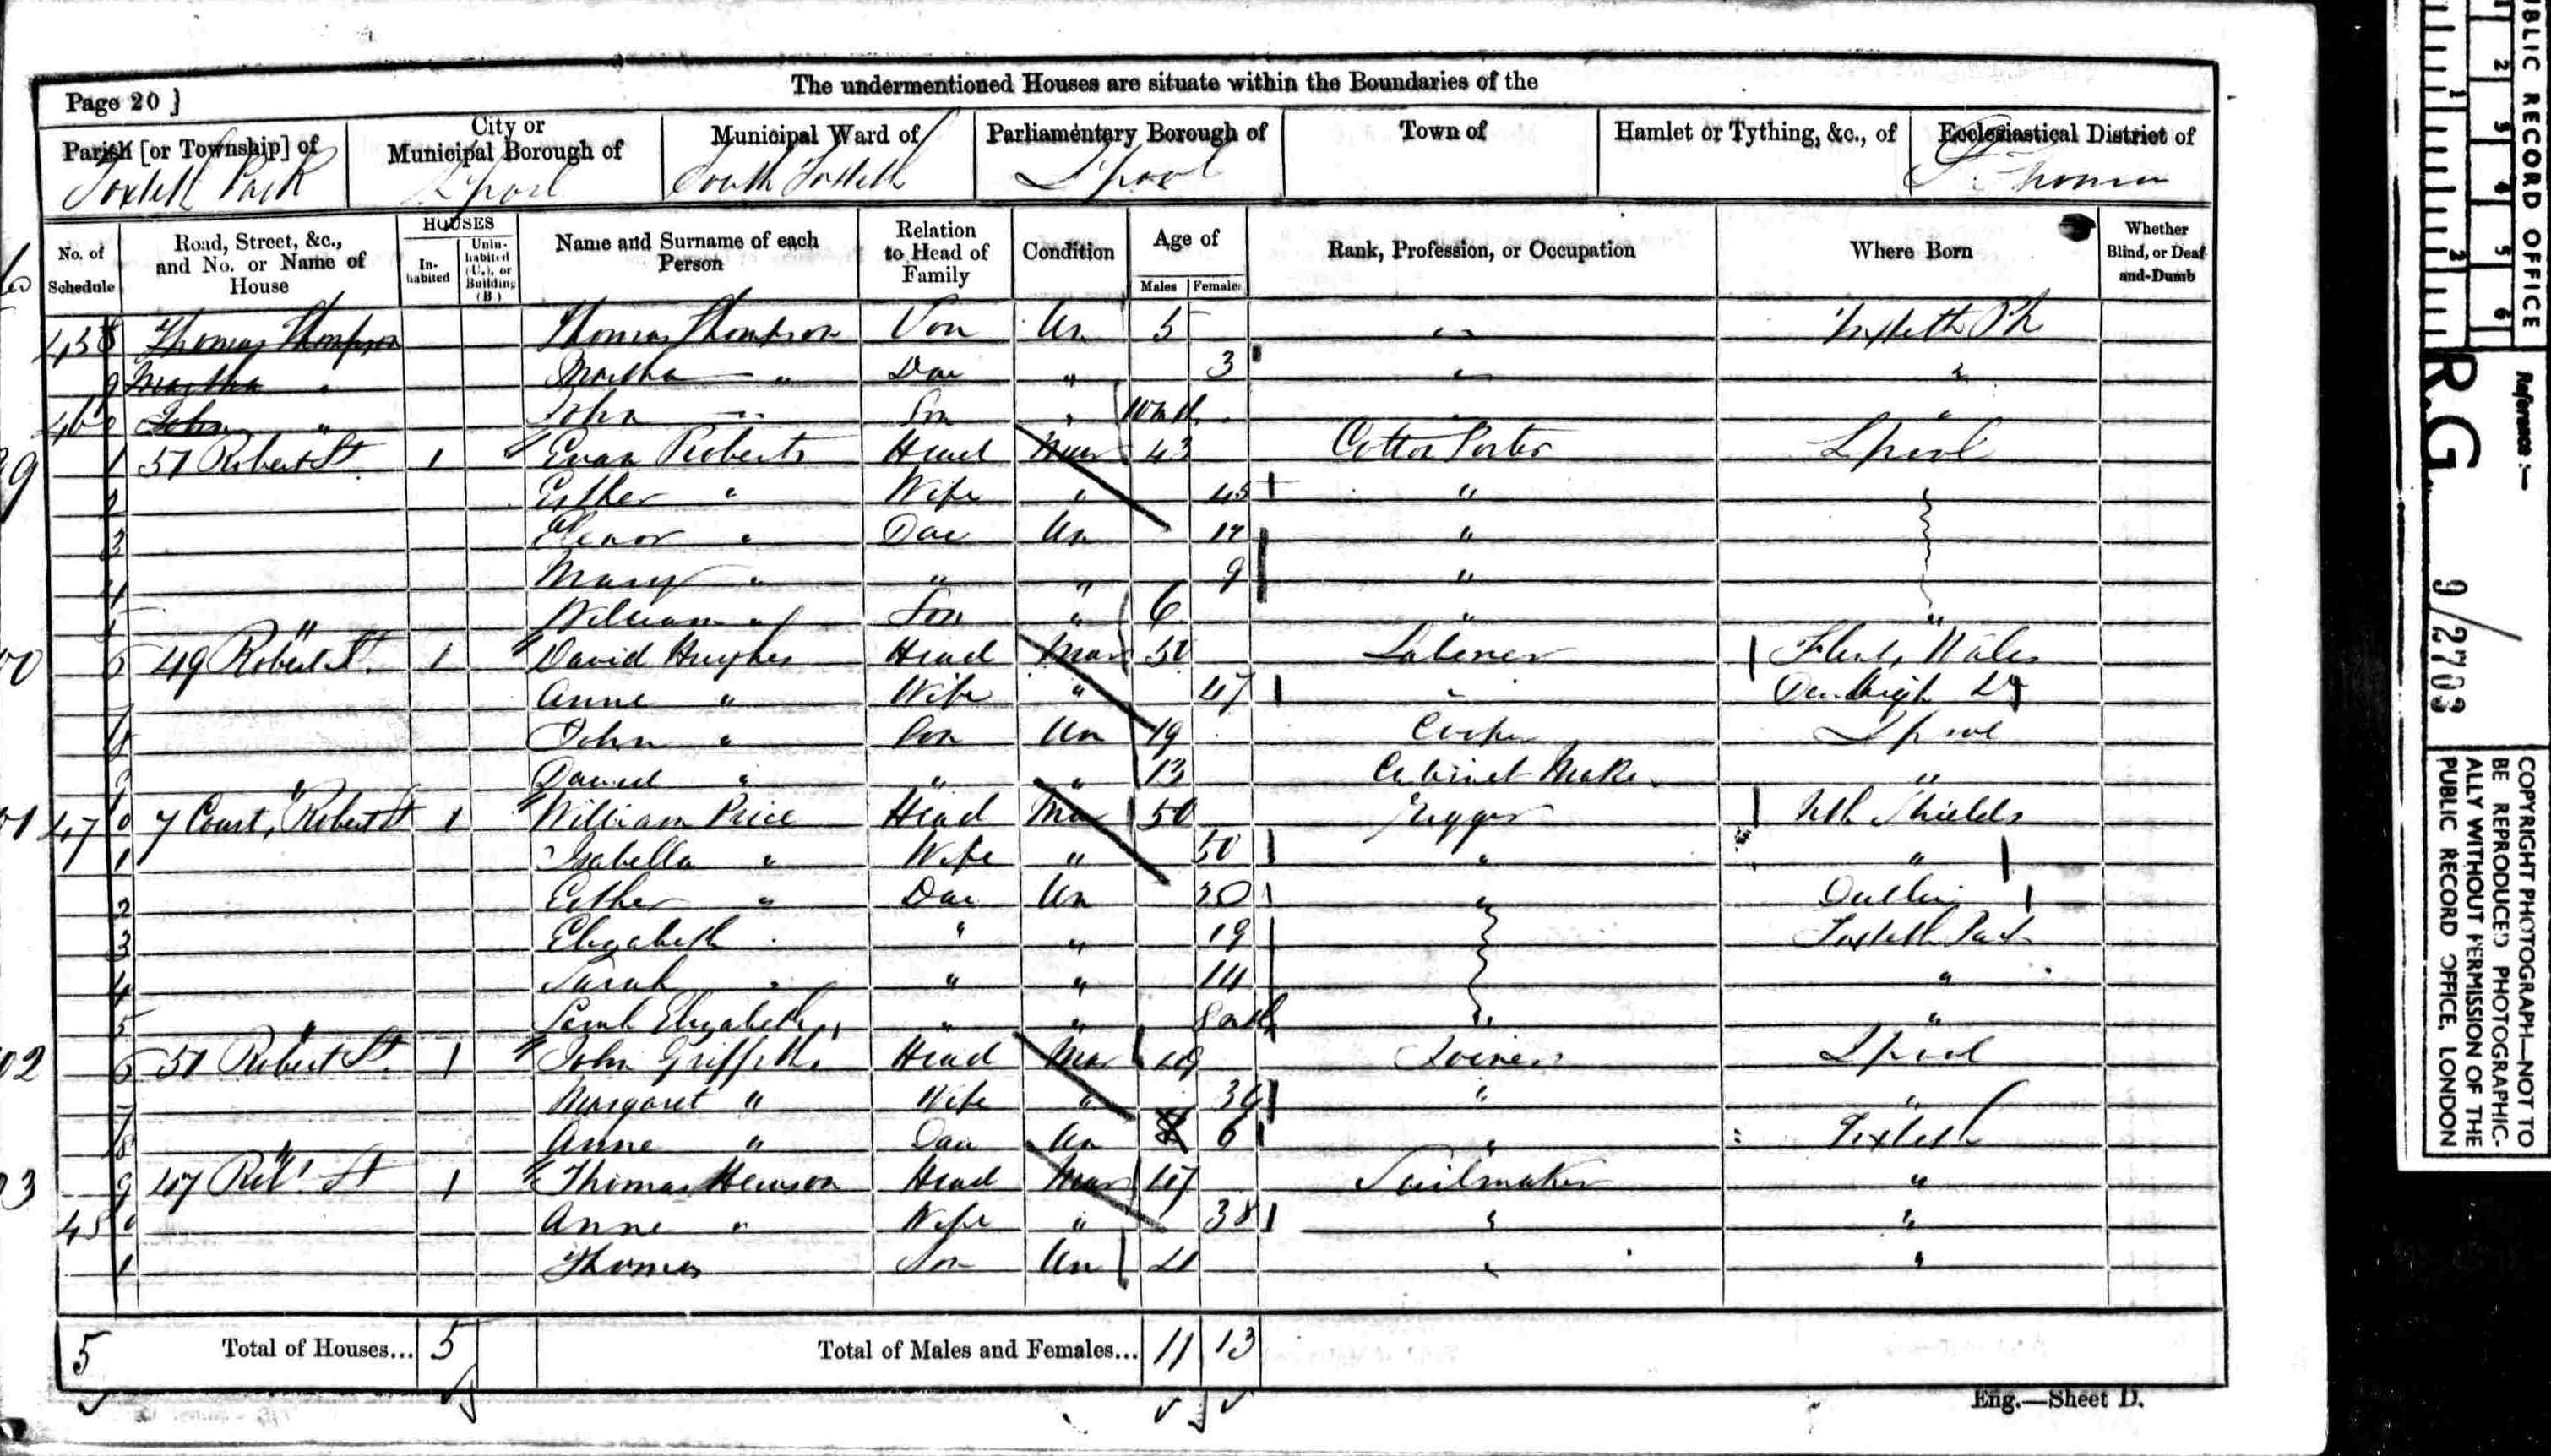 The undermentioned Houses are situate within the Boundaries of the
Page 20 ]
Parish [or Township] of
Toxteth Park
City or
Municipal Borough of
L'pool
Municipal Ward of
South Toxteth
Parliamentary Borough of
L'pool
Town of
Hamlet or Tything, &c., of
Ecclesiastical District of
St. Thomas
No. of
Schedule
Road, Street, &c.,
and No. or Name of
House
HOUSES
In-
habited
Unin-
habited
(U.), or
Building
(B)
Name and Surname of each
Person
Relation
to Head of
Family
Condition
Age of
Males Females
Rank, Profession, or Occupation
Where Born
Whether
Blind, or Deaf-
and-Dumb
458 Thomas Thompson Thomas Thompson Son Un 5 " Toxteth Pk
9 Martha " Martha " Dau " 3 " "
460 John " John " Son " "
1 51 Robert St 1 Evan Roberts Head Mar 43 Cotton Porter L'pool
2 Esther " Wife " 45 "
3 Elenor " Dau Un "
4 Mary " " " 9 "
5 " William " Son " 6 " "
6 49 Robert St. 1 David Hughes Head Mar 50 Laborer Flint, Wales
7 Anne " Wife " 47 " Denbigh Do
8 John " Son Un 19 Cooper L'pool
9 " Daniel " " " 13 Cabinet Maker "
470 7 Court, Robert St 1 William Price Head Mar 50 Rigger Nth Shields
1 Isabella " Wife " 50 " "
2 Esther " Dau Un 20 " Dublin
3 Elizabeth " " 19 Toxteth Park
4 Sarah " " " 14 "
5 " Sarah Elizabeth " " " "
6 51 Robert St. 1 John Griffiths Head Mar 49 Joiner L'pool
7 Margaret " Wife " " "
8 " Anne " Dau Un 6 " Toxteth
9 47 Robt St 1 Thomas Hewson Head Mar 47 Sailmaker "
480 Anne " Wife " 38 " "
1 Thomas Son Un " "
5 Total of Houses... 5 Total of Males and Females... 11 13
Eng.—Sheet D.
PUBLIC RECORD OFFICE
1 2 3 4 5 6
1 2
Reference :—
R.G. 9/2703
COPYRIGHT PHOTOGRAPH—NOT TO
BE REPRODUCED PHOTOGRAPHIC-
ALLY WITHOUT PERMISSION OF THE
PUBLIC RECORD OFFICE, LONDON